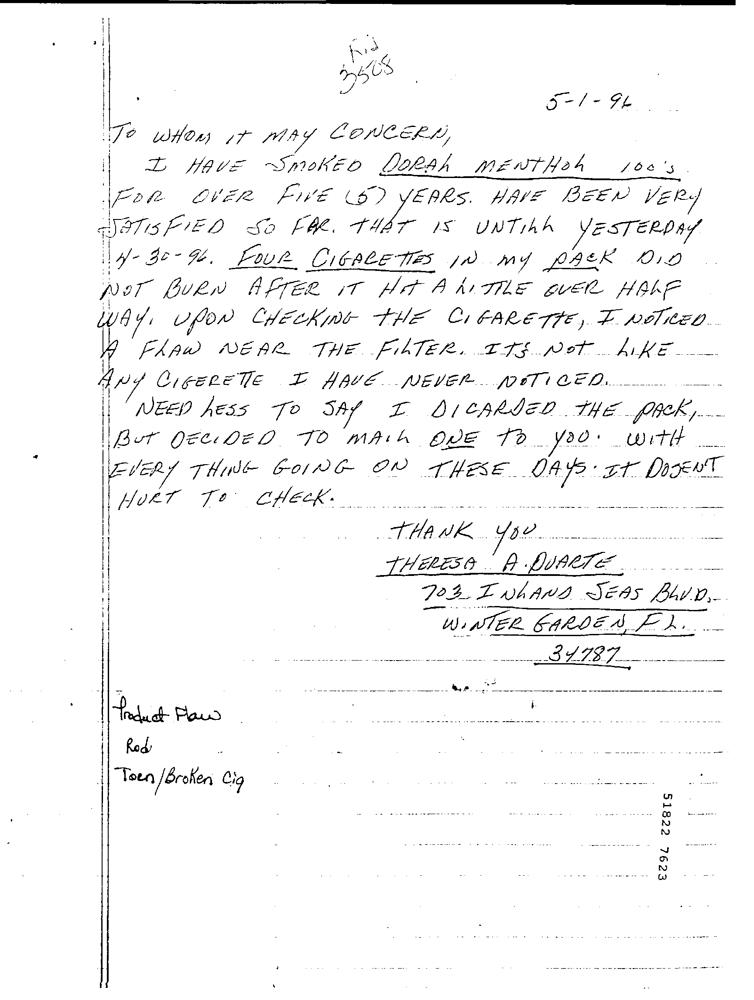 3508
5-1-96
TO WHOM IT MAY CONCERN,
I HAVE SMOKED DORAL MENTHOL 100's
FOR OVER FIVE (5) YEARS. HAVE BEEN VERY
SATISFIED SO FAR. THAT IS UNTILL YESTERDAY
4-30-96. FOUR CIGARETTES IN MY PACK DID
NOT BURN AFTER IT HIT A LITTLE OVER HALF
WAY. UPON CHECKING THE CIGARETTE, I NOTICED
A FLAW NEAR THE FILTER. ITS NOT LIKE
ANY CIGERETTE I HAVE NEVER NOTICED.
NEED LESS TO SAY I DICARDED THE PACK,
BUT DECIDED TO MAIL ONE TO YOU. WITH
EVERY THING GOING ON THESE DAYS. IT DOSENT
HURT TO CHECK.
THANK YOU
THERESA A. DUARTE
703 INLAND SEAS BLVD.
WINTER GARDEN, FL.
34787
Product Flaw
Rod
Toen/Broken Cig
51822 7623